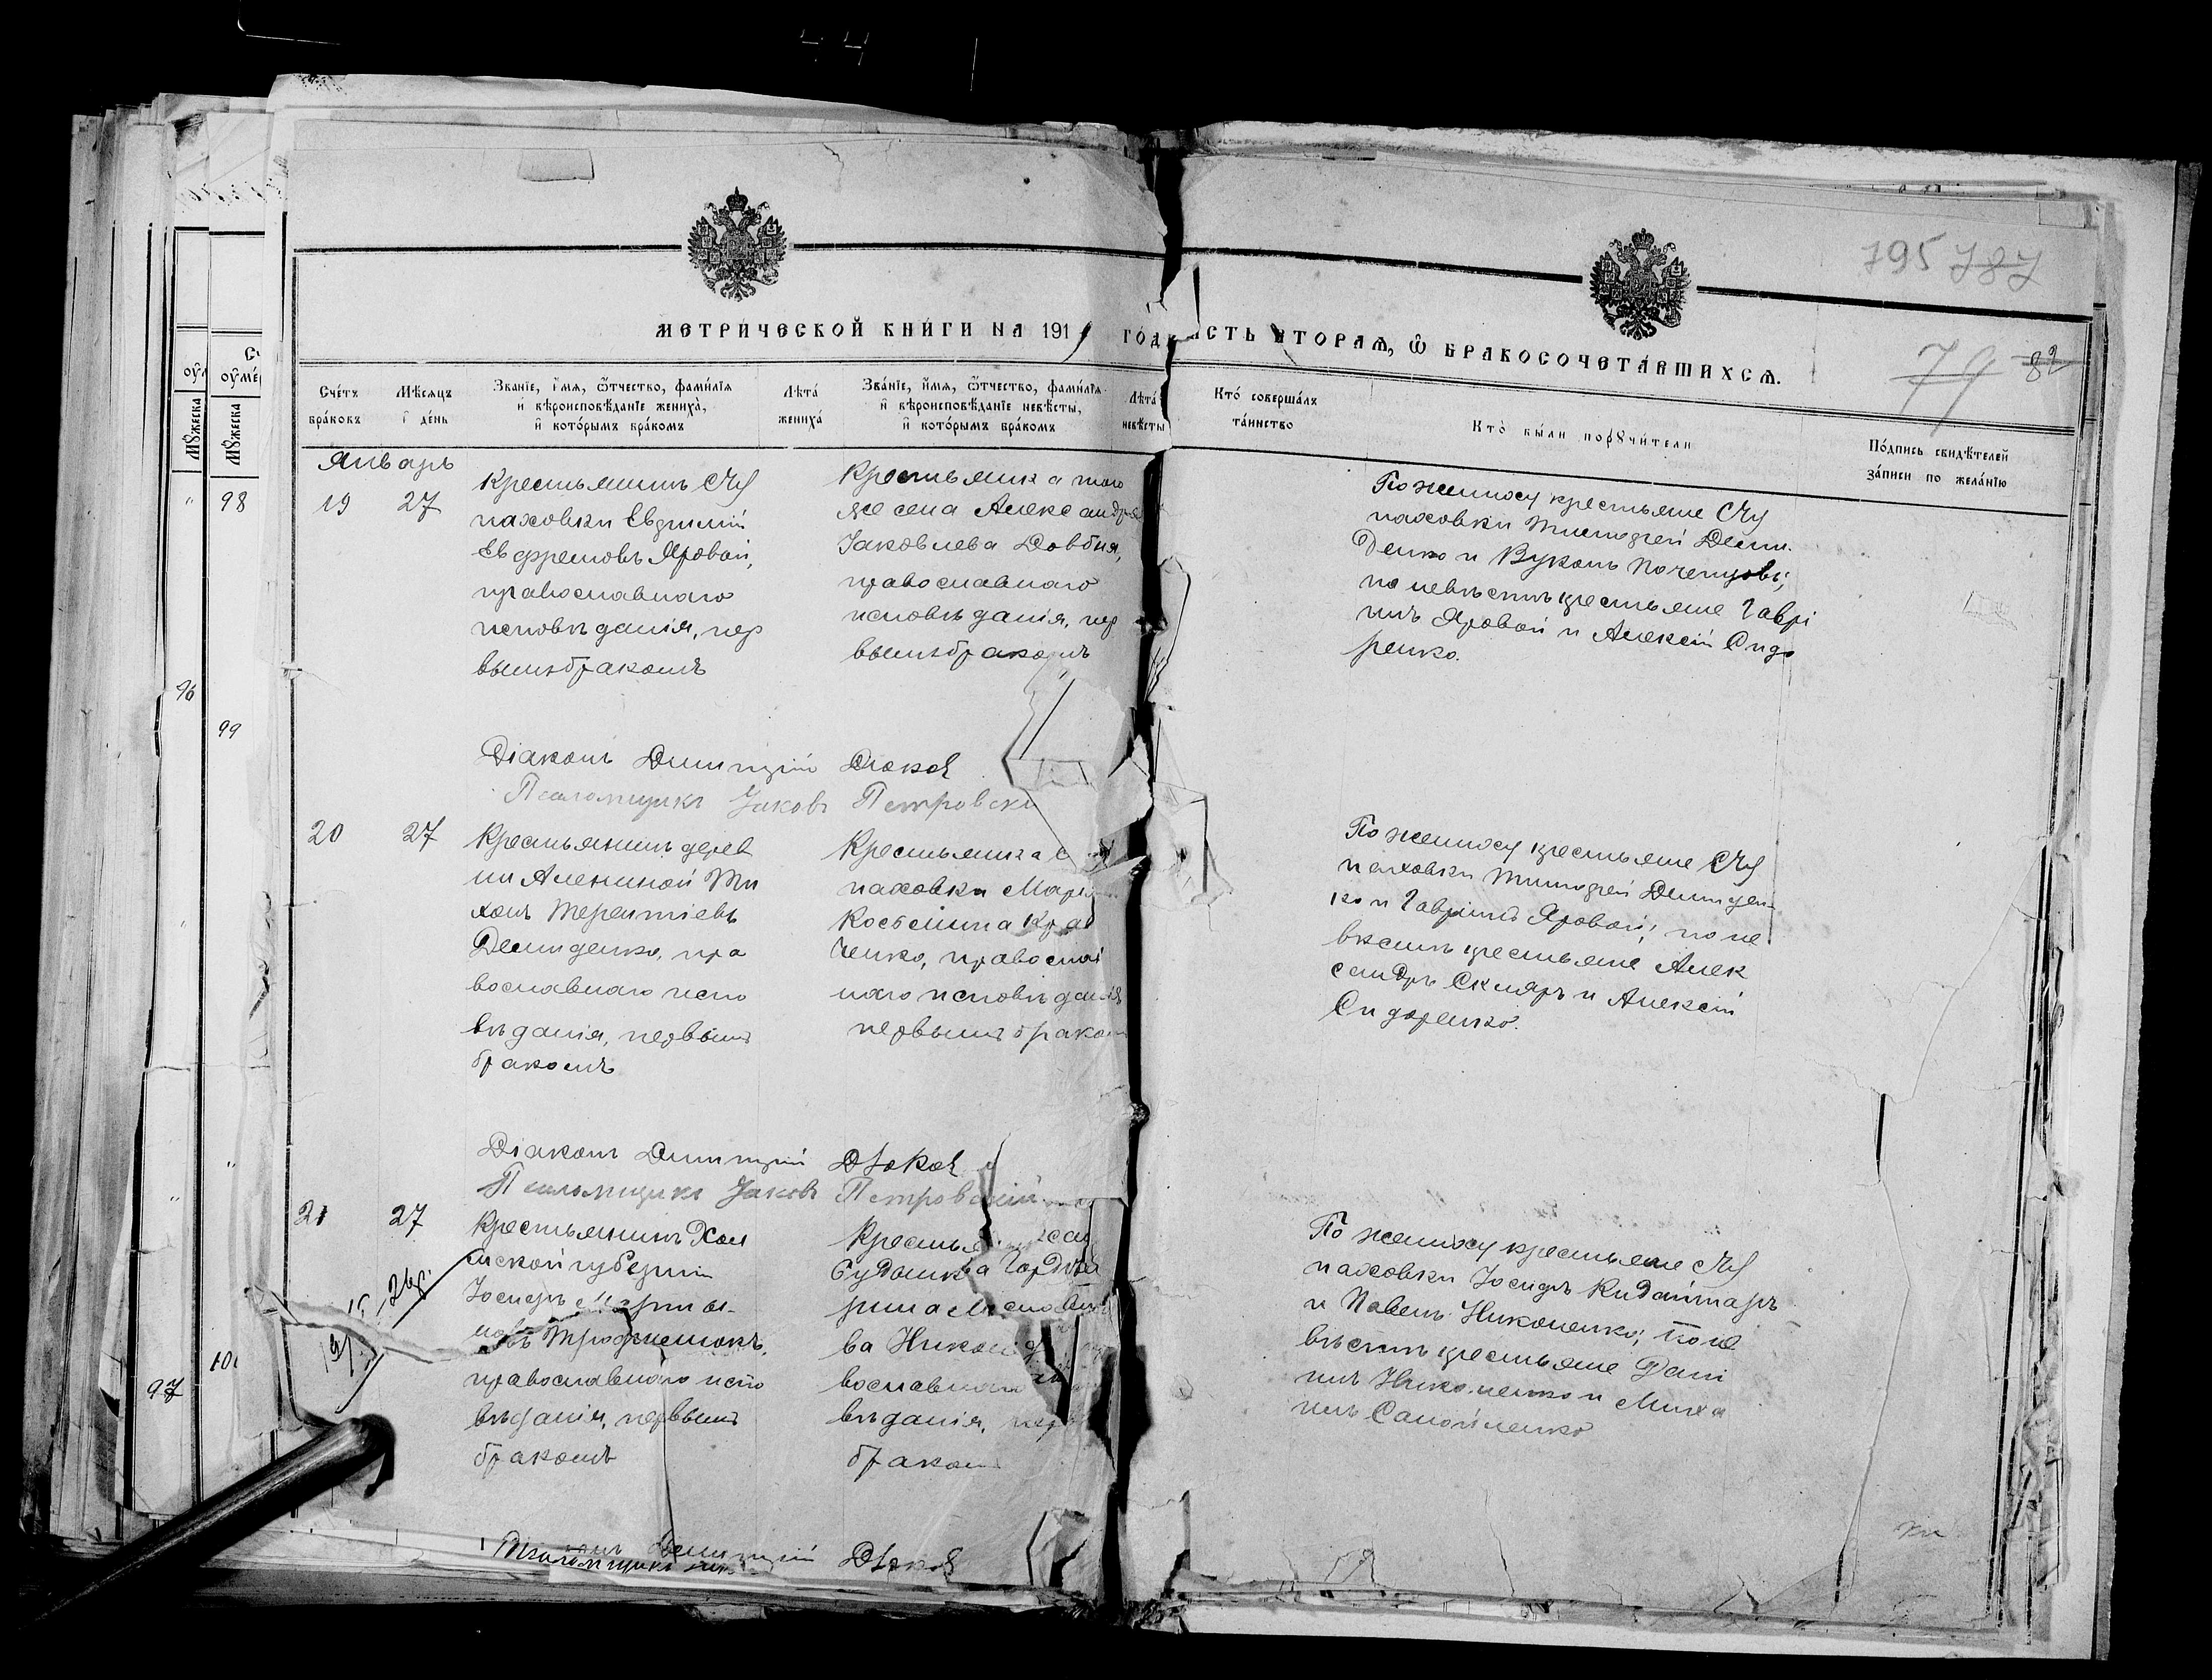 795 787
79 82
МЕТРИЧЕСКОЙ КНИГИ НА 191 ГОД
СТЬ ВТОРАЯ, Ѡ БРАКОСОЧЕТАВШИХСЯ.
Счетъ браковъ
Мѣсяцъ и день
Званіе, имя, ѿчество, фамилія и вѣроисповѣданіе жениха, и которымъ бракомъ
Лѣта жениха
Званіе, имя, ѿчество, фамилія и вѣроисповѣданіе невѣсты, и которымъ бракомъ
Лѣта невѣсты
Кто совершалъ таинство
Кто были поручители
Подпись свидѣтелей записи по желанію
Мужеска
Мужеска
98
96
99
97
Январь
19 27
Крестьянинъ с. Чу
паховки Евдуимій
Евфремовъ Яровой,
православнаго
исповѣданія, пер
вымъ бракомъ
Крестьянка того
же села Александра
Іаковлева Довбня,
православнаго
исповѣданія, пер
вымъ бракомъ
По жениху крестьяне с. Чу
паховки Тимофей Деми
денко и Вуколъ Почепцовъ;
по невѣстѣ крестьяне Гаврі
илъ Яровой и Алексій Сидо
ренко.
Діаконъ Димитрій Дьяковъ
Псаломщикъ Іаковъ Петровскі
20 27
Крестьянинъ дерев
ни Алениной Ти
хонъ Терентіевъ
Демиденко, пра
вославнаго испо
вѣданія, первымъ
бракомъ
Крестьянка с
паховки Марі
Косьмина Крав
ченко, православ
наго исповѣданія
первымъ бракомъ
По жениху крестьяне с. Чу
паховки Тимофей Демиден
ко и Гавріилъ Яровой; по не
вѣстѣ крестьяне Алек
сандръ Скляръ и Алексій
Сидоренко.
Діаконъ Димитрій Дьяковъ
Псаломщикъ Іаковъ Петровскій
21 27
Крестьянинъ Хол
мской губерніи
Іосифъ Марты
новъ
православнаго испо
вѣданія, первымъ
бракомъ
Крестья
ва Никон
вославнаго
вѣданія, пер
браком
По жениху крестьяне с. Чу
паховки Іосифъ
и Павелъ Никоненко; по не
вѣстѣ крестьяне Дані
илъ Никоненко и Миха
илъ Самойленко
Димитрій Дьяковъ
Псаломщикъ